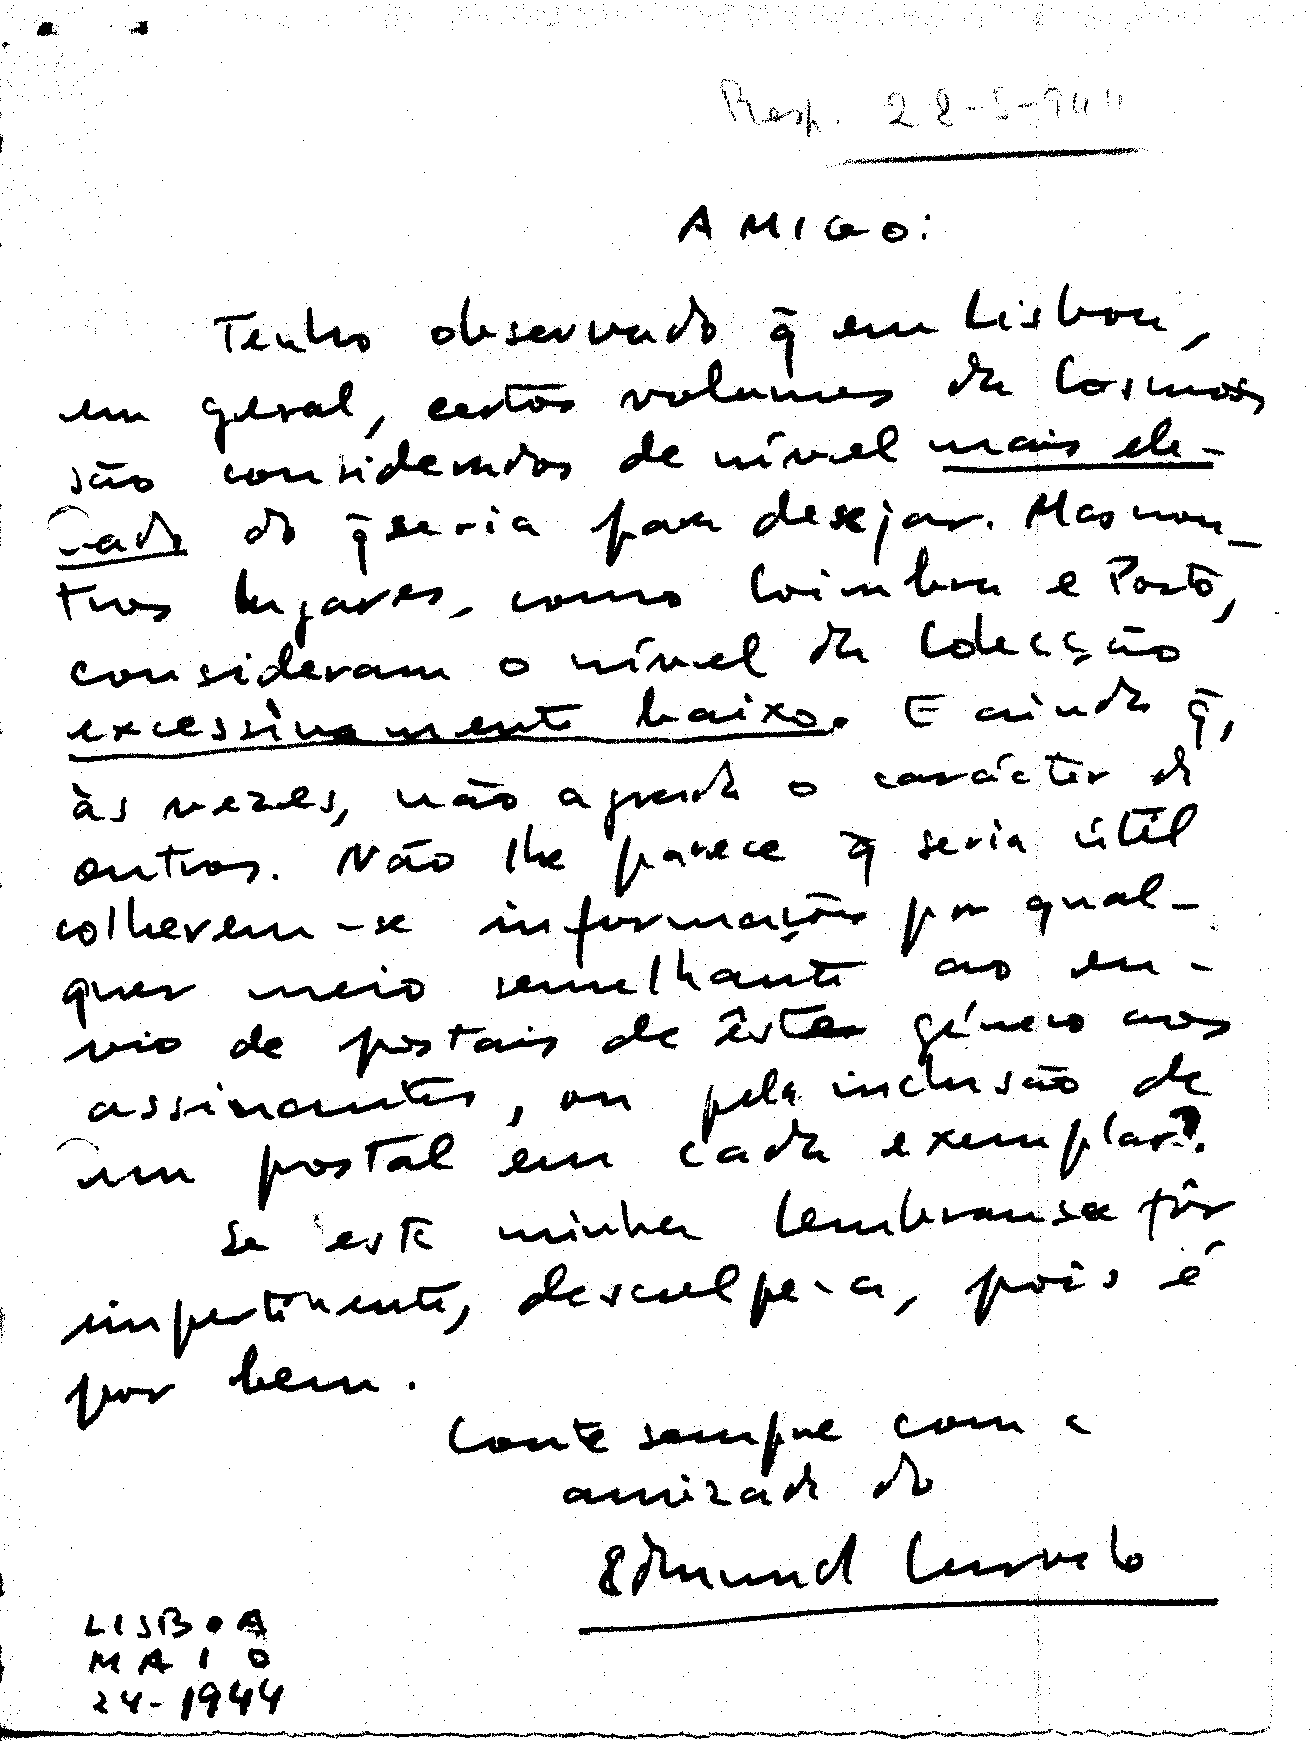 Resp. 28-5-944
AMIGO:
Tenho observado q̄ em Lisboa,
em geral, certos volumes da Cosmos
são considerados de nível mais ele-
vado do q̄ seria para desejar. Mas nou-
tros lugares, como Coimbra e Porto,
consideram o nível da Colecção
excessivamente baixo. E ainda q̄,
às vezes, não agrada o carácter de
outros. Não lhe parece q̄ seria útil
colherem-se informações por qual-
quer meio semelhante ao en-
vio de postais de êste género aos
assinantes, ou pela inclusão de
um postal em cada exemplar?
Se esta minha lembransa fôr
impertinente, desculpe-a, pois é
por bem.
Conte sempre com a
amizade do
Edmund Curvelo
LISBOA
MAIO
24-1944